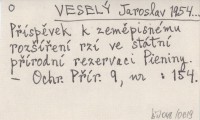 O VESELÝ Jaroslav 1954...
Příspěvek k zeměpisnému
rozšíření rzí ve státní
přírodní rezervaci Pieniny.
- Ochr. Přír. 9, nr : 154.